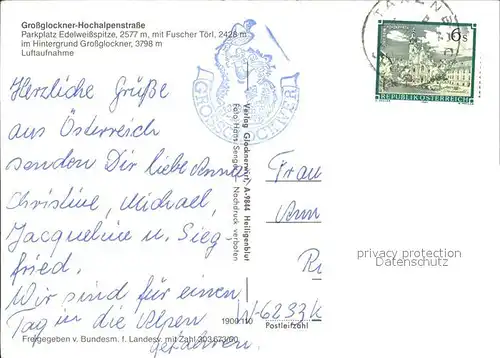 Großglockner-Hochalpenstraße
Parkplatz Edelweißspitze, 2577 m, mit Fuscher Törl, 2428 m
im Hintergrund Großglockner, 3798 m
Luftaufnahme
GROSSGLOCKNER
6 S
REPUBLIK ÖSTERREICH
Herzliche Grüße
aus Österreich
senden Dir liebe Anna
Christine, Michael,
Jacqueline u. Sieg
fried.
Wir sind für einen
Tag in die Alpen
gefahren.
Verlag Glocknerwirt, A-9844 Heiligenblut
Foto: Hans Senger Nachdruck verboten
Frau
Ann
W-6233 K
Postleitzahl
privacy protection
Datenschutz
1900 110
Freigegeben v. Bundesm. f. Landesv. mit Zahl 303 673/60